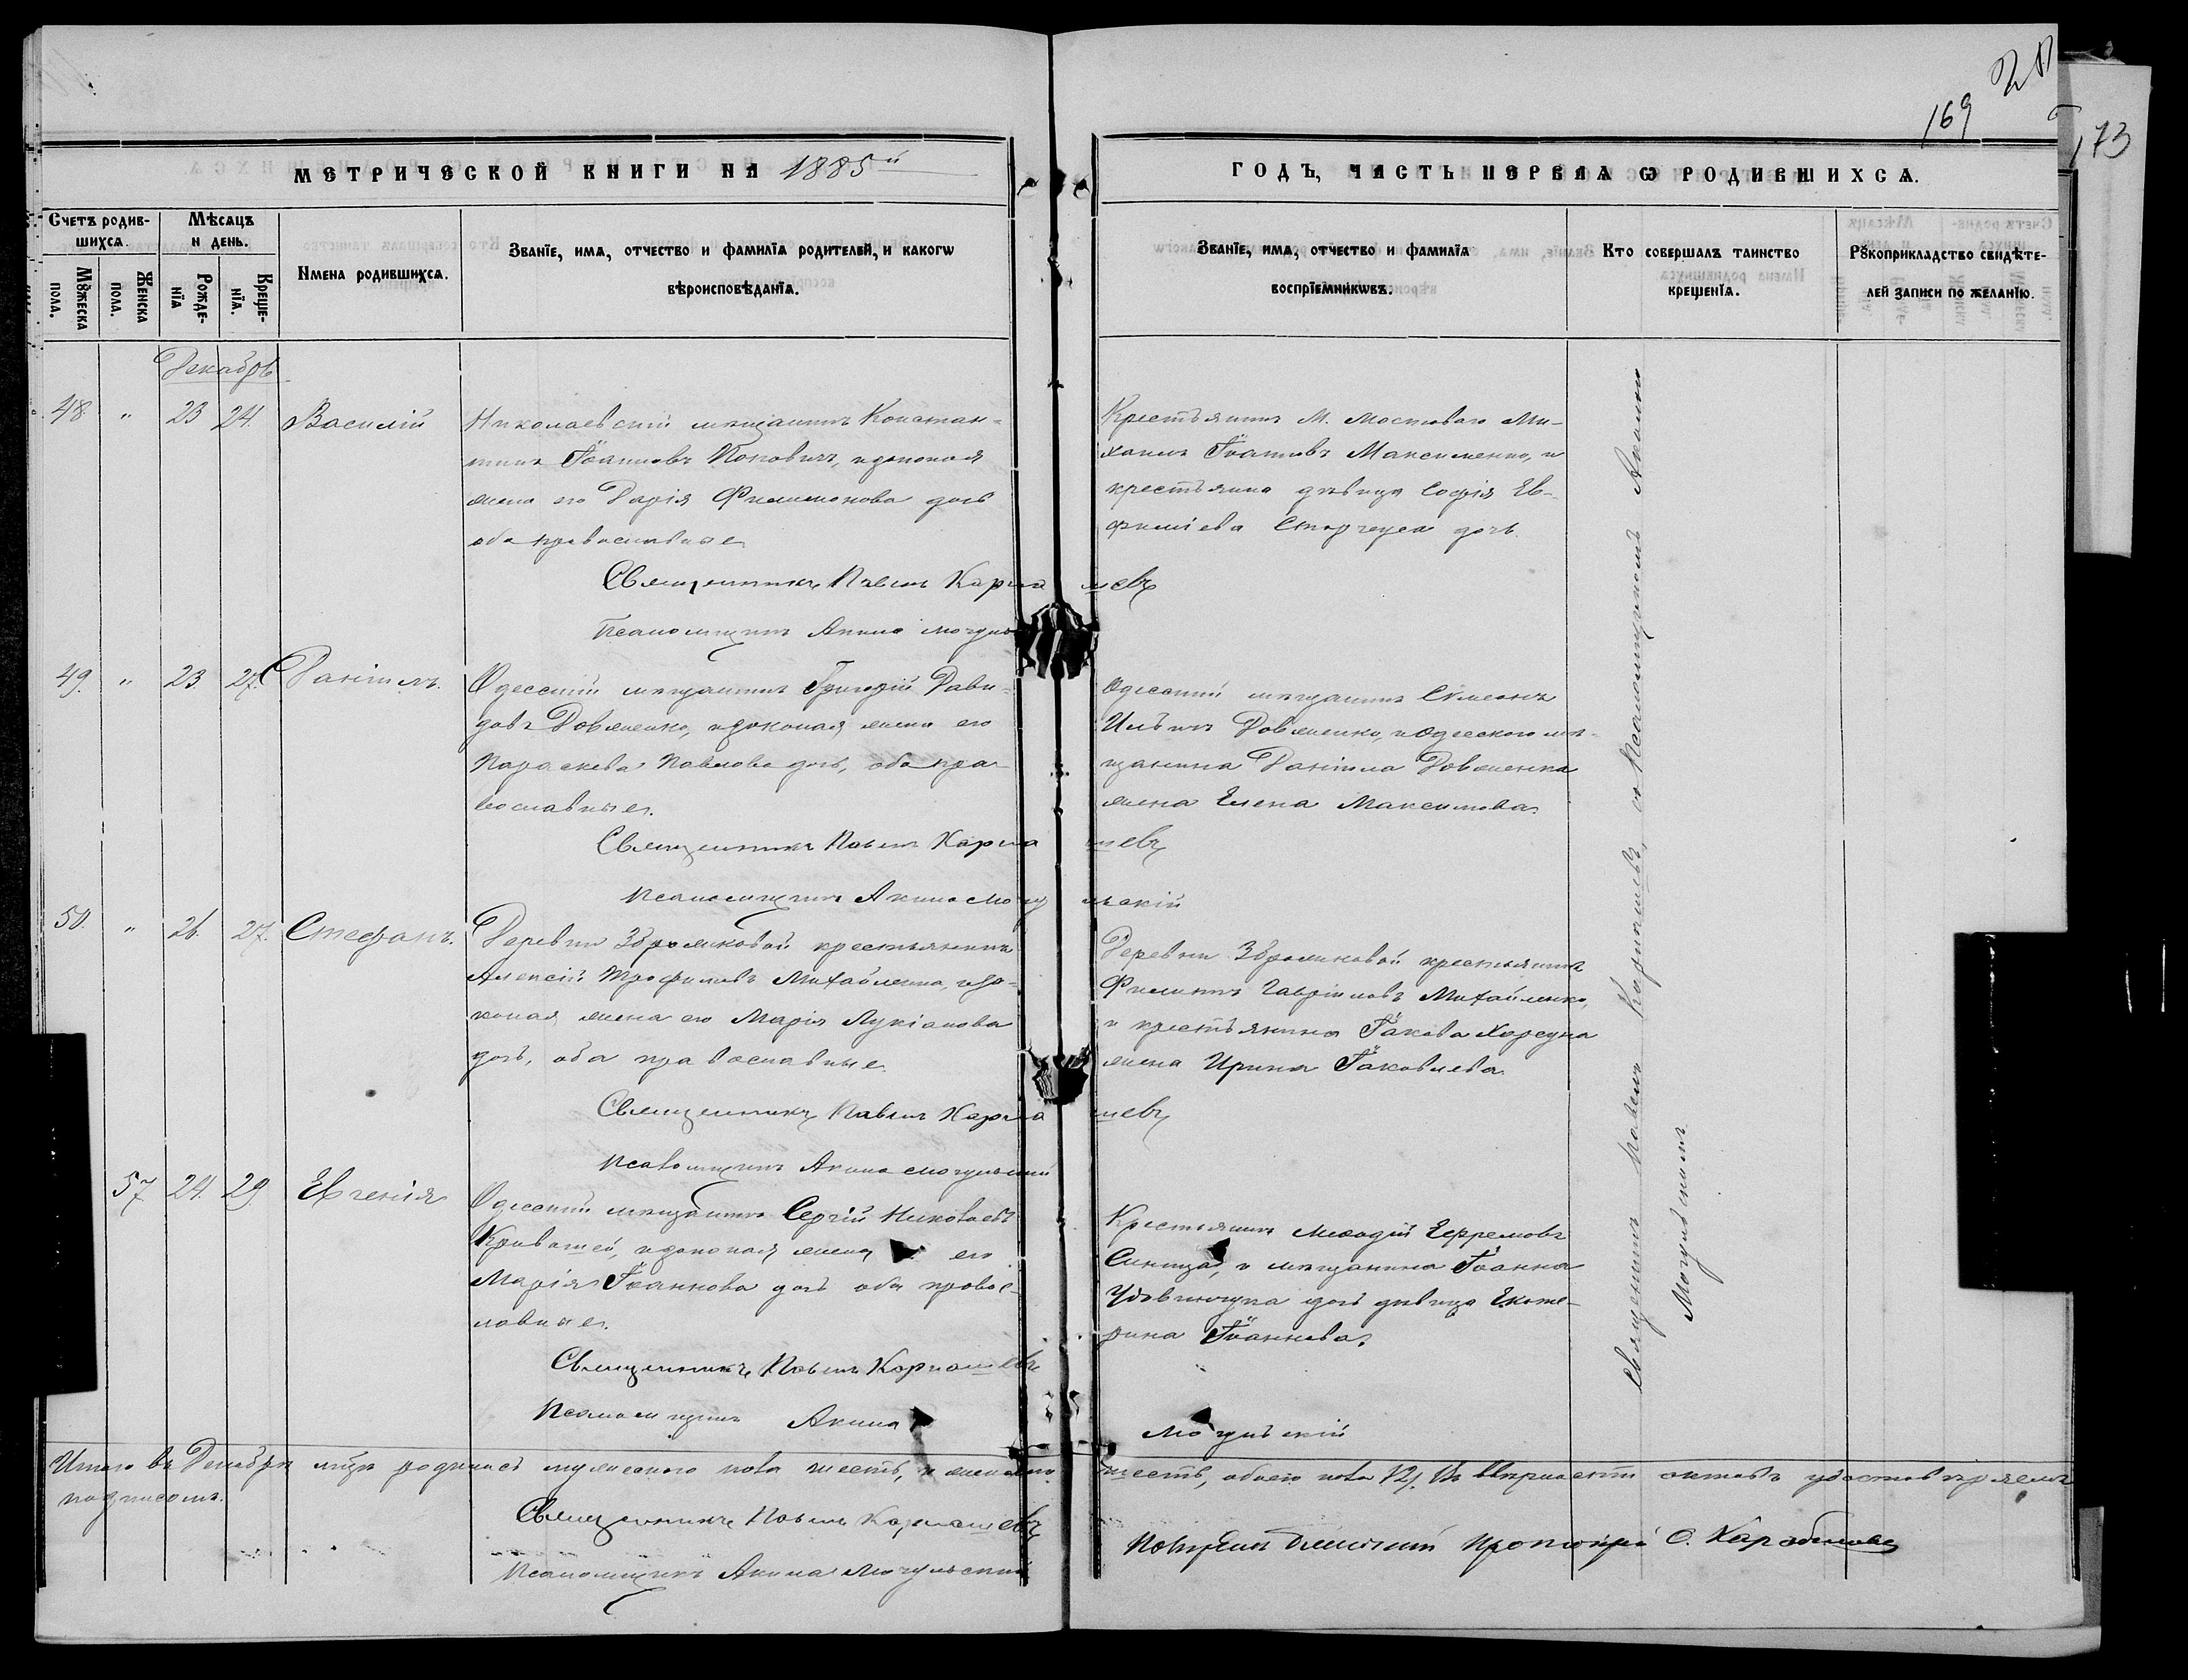 169
173
МЕТРИЧЕСКОЙ КНИГИ НА 1885й
ГОДЪ, ЧАСТЬ ПЕРВАЯ Ѡ РОДИВШИХСѦ.
Счетъ родив-
шихсѧ.
Мѣсяцъ
и день.
Мꙋжеска
пола.
Женска
пола.
Рожде-
нїѧ
Креще-
нїѧ.
Имена родившихсѧ.
Званїе, имѧ, отчество и фамилїѧ родителей, и какогѡ
вѣроисповѣданїѧ.
Званїе, имѧ, отчество и фамилїѧ
воспрїемникѡвъ.
Кто совершалъ таинство
крещенїѧ.
Рꙋкоприкладство свидѣте-
лей записи по желанїю.
Декабрь
48. " 23 24. Василій
Николаевскій мѣщанинъ Констан-
тинъ Іоанновъ Поповичъ, и законная
жена его Дарія Филимонова дочь
оба православные
Священникъ Павелъ Карташевъ
Псаломщикъ Акила
Крестьянинъ М. Мостоваго Ми-
хаилъ Іоанновъ Максименко, и
крестьянина дѣвица Софія Ев-
фиміева дочь.
49. " 23. 27. Даніилъ.
Одесскій мѣщанинъ Григорій Дави-
довъ Довженко, и законная жена его
Параскева Павлова дочь, оба пра-
вославные.
Священникъ Павелъ Карташевъ
Псаломщикъ Акила Могульскій
Одесскій мѣщанинъ Симеонъ
Ильинъ Довженко, и Одесскаго мѣ-
щанина Даніила Довженка
жена Елена Максимова.
50. " 26. 27. Стефанъ.
Деревни Зброжковой крестьянинъ
Алексій Трофимовъ Михайленко, и за-
конная жена его Марія Лукіанова
дочь, оба православные
Священникъ Павелъ Карташевъ
Псаломщикъ Акила Могульскій
Деревни Зброжковой крестьянинъ
Филиппъ Гавріиловъ Михайленко,
и крестьянина Іакова
жена Ирина Іаковлева
57 24. 29 Евгенія
Одесскій мѣщанинъ Сергій Николаевъ
и законная жена его
Марія Іоаннова дочь оба правос-
лавные.
Священникъ Павелъ Карташевъ
Псаломщикъ Акила Могульскій
Крестьянинъ Меѳодій Ефремовъ
Синица, и мѣщанина Іоанна
дочь дѣвица Екате-
рина Іоаннова.
Священникъ Павелъ Карташевъ, съ Псаломщикомъ Акилою
Могульскимъ
Итого въ Декабрѣ м-цѣ родилось мужескаго пола шесть, и женскаго шесть, обоего пола 12. въ вѣрности актовъ удостовѣряемъ
подписомъ.
Священникъ Павелъ Карташевъ
Псаломщикъ Акила Могульскій
Протоіерей С. Карабиновъ